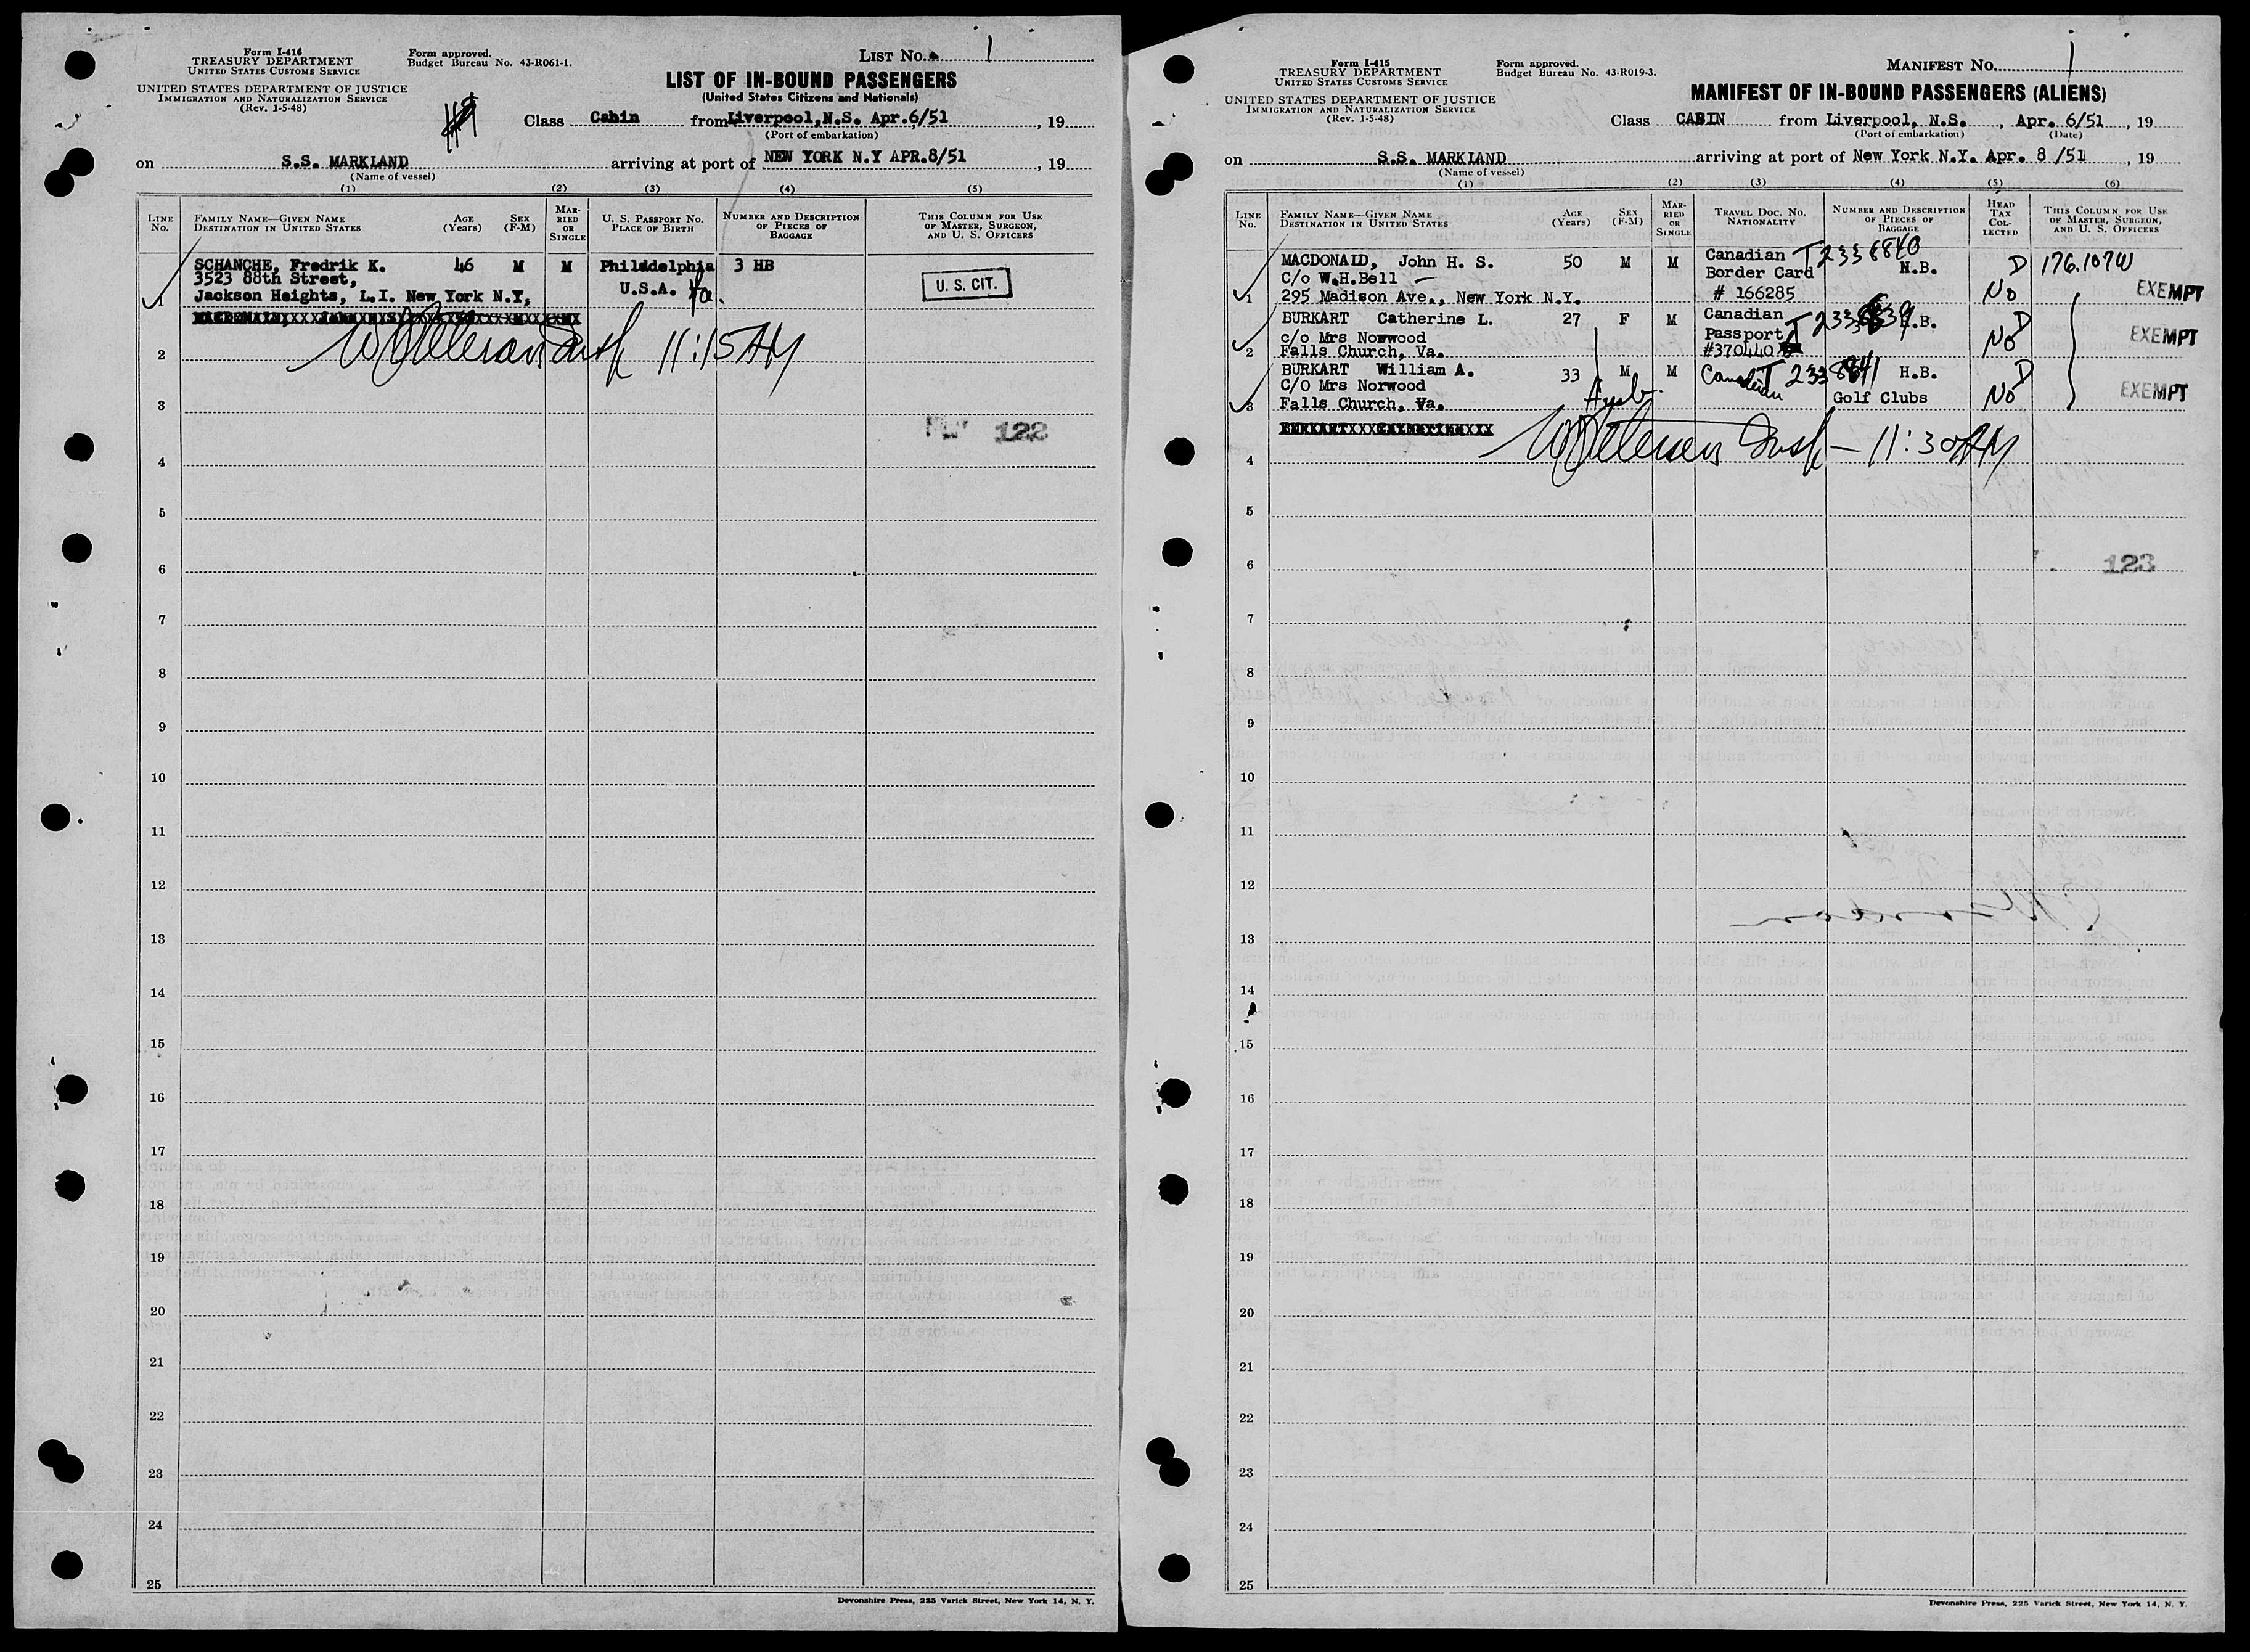 Form I-416
TREASURY DEPARTMENT
UNITED STATES CUSTOMS SERVICE
UNITED STATES DEPARTMENT OF JUSTICE
IMMIGRATION AND NATURALIZATION SERVICE
(Rev. 1-5-48)
Form approved.
Budget Bureau No. 43-R061-1.
LIST No. 1
LIST OF IN-BOUND PASSENGERS
(United States Citizens and Nationals)
Class Cabin from Liverpool, N.S. Apr. 6/51, 19
(Port of embarkation)
on S.S. MARKLAND arriving at port of NEW YORK N.Y APR.8/51, 19
(Name of vessel)
(1) (2) (3) (4) (5)
LINE No.
FAMILY NAME—GIVEN NAME
DESTINATION IN UNITED STATES
AGE (Years)
SEX (F-M)
MARRIED OR SINGLE
U. S. PASSPORT No.
PLACE OF BIRTH
NUMBER AND DESCRIPTION OF PIECES OF BAGGAGE
THIS COLUMN FOR USE OF MASTER, SURGEON, AND U. S. OFFICERS
1 SCHANCHE, Fredrik K. 46 M M Philadelphia 3 HB
3523 88th Street, U.S.A. Pa.
Jackson Heights, L.I. New York N.Y,
U. S. CIT.
2 11:15 AM
3
122
4
5
6
7
8
9
10
11
12
13
14
15
16
17
18
19
20
21
22
23
24
25
Devonshire Press, 225 Varick Street, New York 14, N. Y.
Form I-415
TREASURY DEPARTMENT
UNITED STATES CUSTOMS SERVICE
UNITED STATES DEPARTMENT OF JUSTICE
IMMIGRATION AND NATURALIZATION SERVICE
(Rev. 1-5-48)
Form approved.
Budget Bureau No. 43-R019-3.
MANIFEST No. 1
MANIFEST OF IN-BOUND PASSENGERS (ALIENS)
Class CABIN from Liverpool, N.S., Apr. 6/51, 19
(Port of embarkation) (Date)
on S.S. MARKLAND arriving at port of New York N.Y. Apr. 8 /51, 19
(Name of vessel)
(1) (2) (3) (4) (5) (6)
LINE No.
FAMILY NAME—GIVEN NAME
DESTINATION IN UNITED STATES
AGE (Years)
SEX (F-M)
MARRIED OR SINGLE
TRAVEL DOC. No.
NATIONALITY
NUMBER AND DESCRIPTION OF PIECES OF BAGGAGE
HEAD TAX COLLECTED
THIS COLUMN FOR USE OF MASTER, SURGEON, AND U. S. OFFICERS
MACDONALD, John H. S. 50 M M Canadian T2338840 H.B. D 176.107W
C/o W.H.Bell Border Card
1 295 Madison Ave., New York N.Y. # 166285 No EXEMPT
BURKART Catherine L. 27 F M Canadian T2338839 H.B. D
c/o Mrs Norwood Passport EXEMPT
2 Falls Church, Va. #370440 No
BURKART William A. 33 M M Canadian T2338841 H.B. D
C/O Mrs Norwood
3 Falls Church, Va. Husb. Golf Clubs No EXEMPT
4 Insp — 11:30 AM
5
6 123
7
8
9
10
11
12
13
14
15
16
17
18
19
20
21
22
23
24
25
Devonshire Press, 225 Varick Street, New York 14, N. Y.